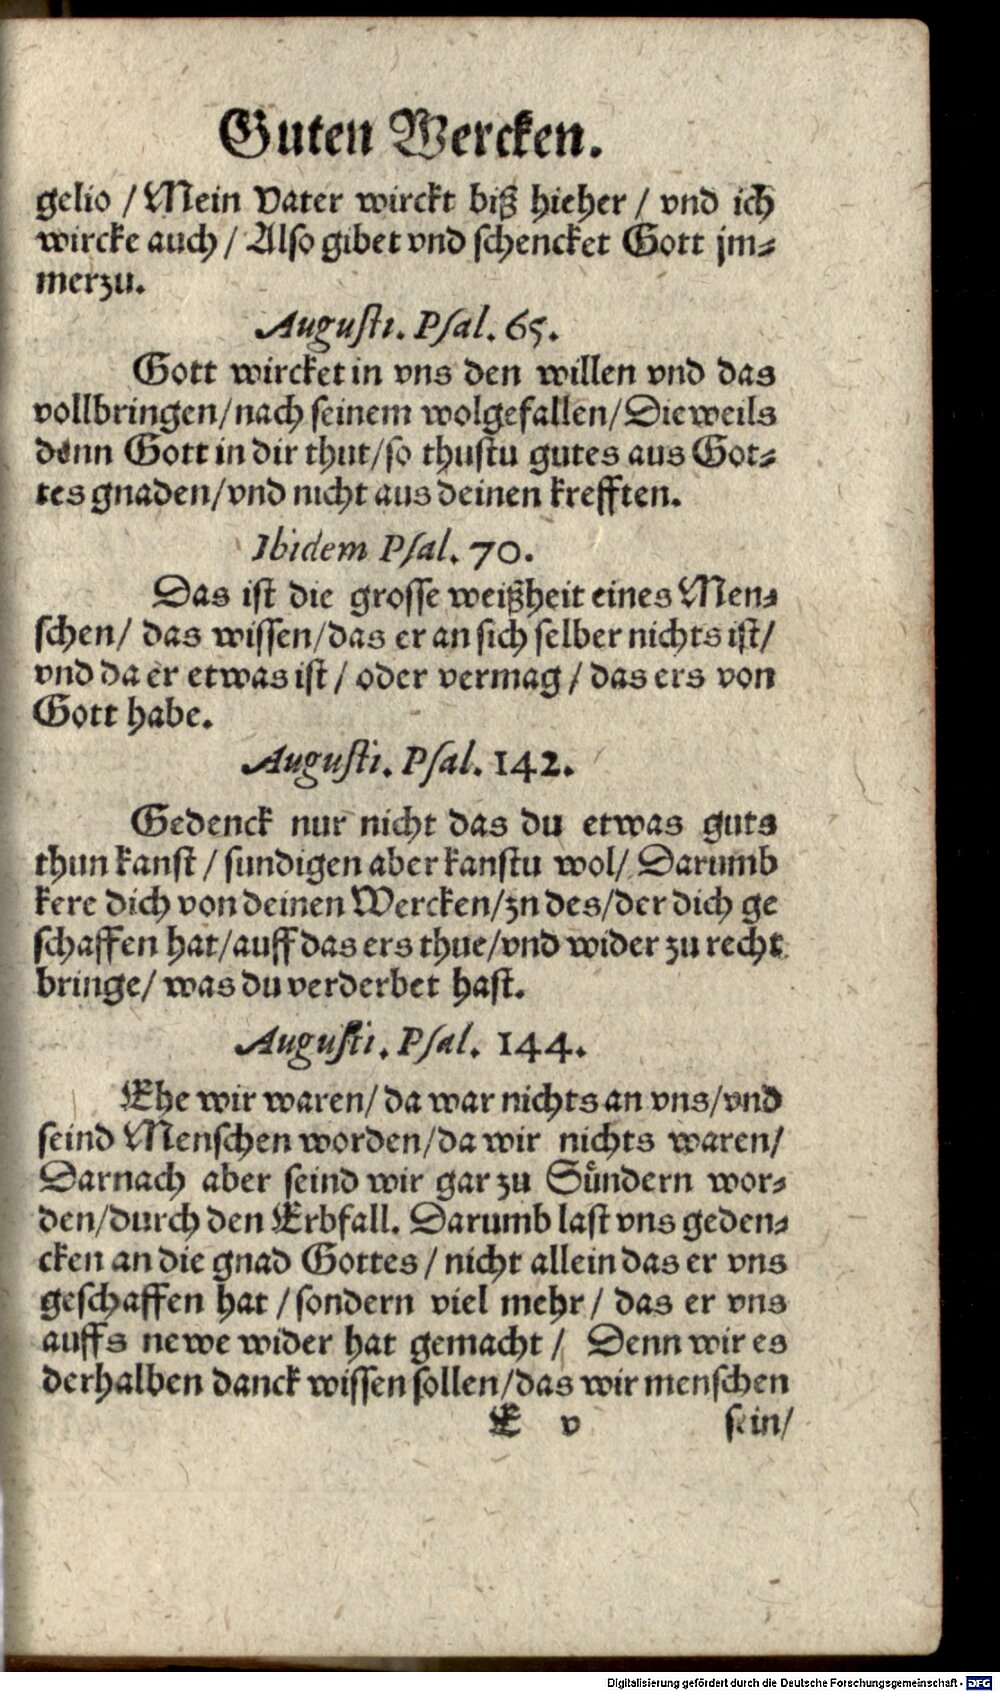 Guten Wercken.
gelio / Mein Vater wirckt biß hieher / vnd ich
wircke auch / Also gibet vnd schencket Gott jm⸗
merzu.
Augusti. Psal. 65.
Gott wircket in vns den willen vnd das
vollbringen/nach seinem wolgefallen/Dieweils
denn Gott in dir thut/so thustu gutes aus Got⸗
tes gnaden/vnd nicht aus deinen krefften.
Ibidem Psal. 70.
Das ist die grosse weißheit eines Men⸗
schen/ das wissen/das er an sich selber nichts ist/
vnd da er etwas ist / oder vermag / das ers von
Gott habe.
Augusti. Psal. 142.
Gedenck nur nicht das du etwas guts
thun kanst / sundigen aber kanstu wol/ Darumb
kere dich von deinen Wercken/zn des/der dich ge
schaffen hat/auff das ers thue/vnd wider zu recht
bringe/ was du verderbet hast.
Augusti. Psal. 144.
Ehe wir waren/ da war nichts an vns/vnd
seind Menschen worden/da wir nichts waren/
Darnach aber seind wir gar zu Suͤndern wor⸗
den/durch den Erbfall. Darumb last vns geden⸗
cken an die gnad Gottes / nicht allein das er vns
geschaffen hat / sondern viel mehr / das er vns
auffs newe wider hat gemacht / Denn wir es
derhalben danck wissen sollen/das wir menschen
E v sein/
Digitalisierung gefördert durch die Deutsche Forschungsgemeinschaft - DFG